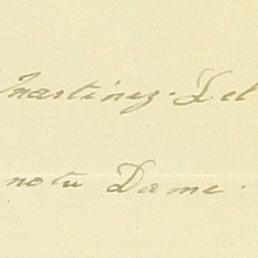 Martinez. Del
notu Dame.